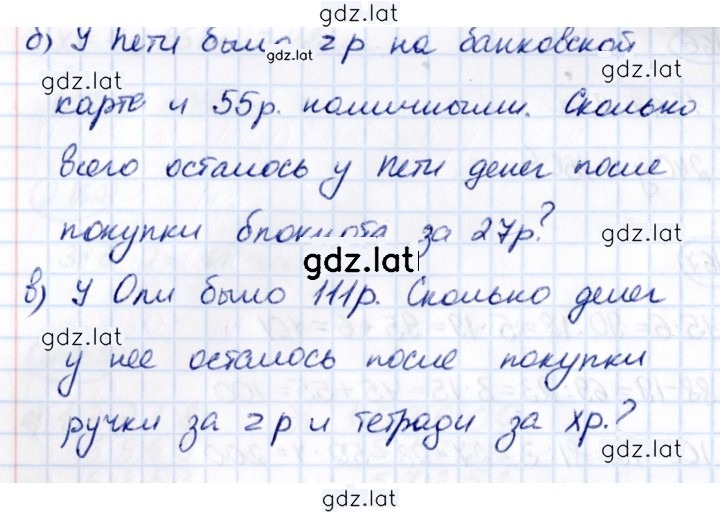 gdz.lat
б) У Пети было z р на банковской
gdz.lat
gdz.lat
gdz.lat
карте и 55р. наличными. Сколько
всего осталось у Пети денег после
покупки блокнота за 27р?
gdz.lat
gdz.lat
gdz.lat
в) У Оли было 111р. Сколько денег
gdz.lat
у нее осталось после покупки
gdz.lat
ручки за z р и тетради за хр.?
gdz.lat
gdz.lat
gdz.lat